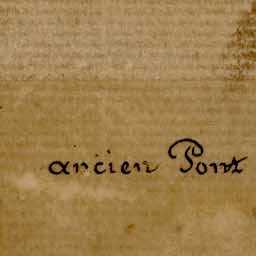 ancien Pont